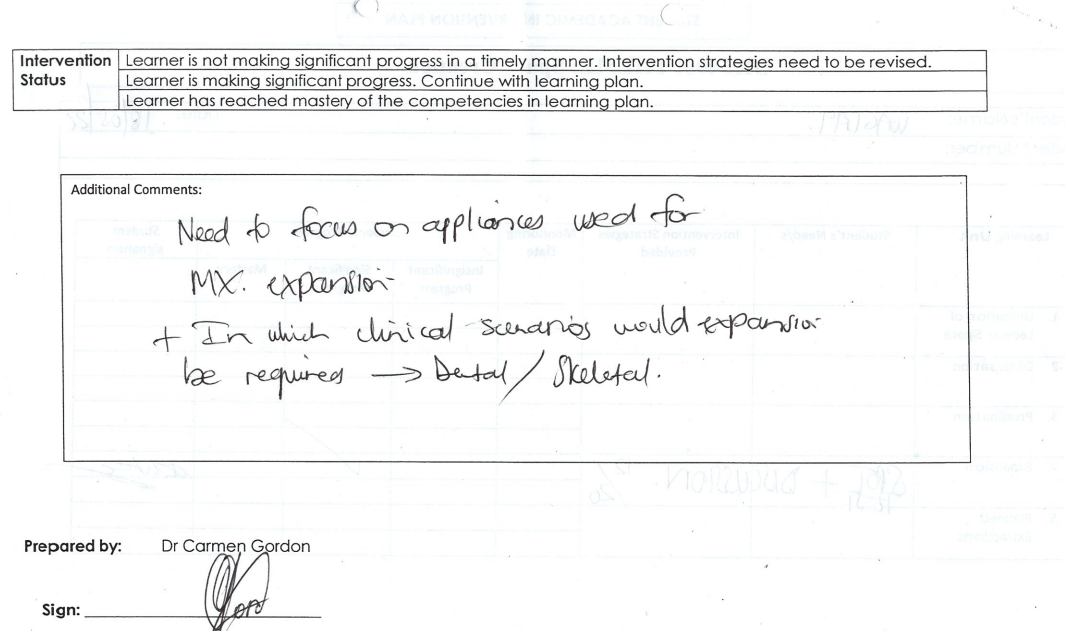 Intervention Status
Learner is not making significant progress in a timely manner. Intervention strategies need to be revised.
Learner is making significant progress. Continue with learning plan.
Learner has reached mastery of the competencies in learning plan.
Additional Comments:
Need to focus on appliances used for
MX. expansion
+ In which clinical scenarios would expansion
be required → Dental / Skeletal.
Prepared by: Dr Carmen Gordon
Sign: